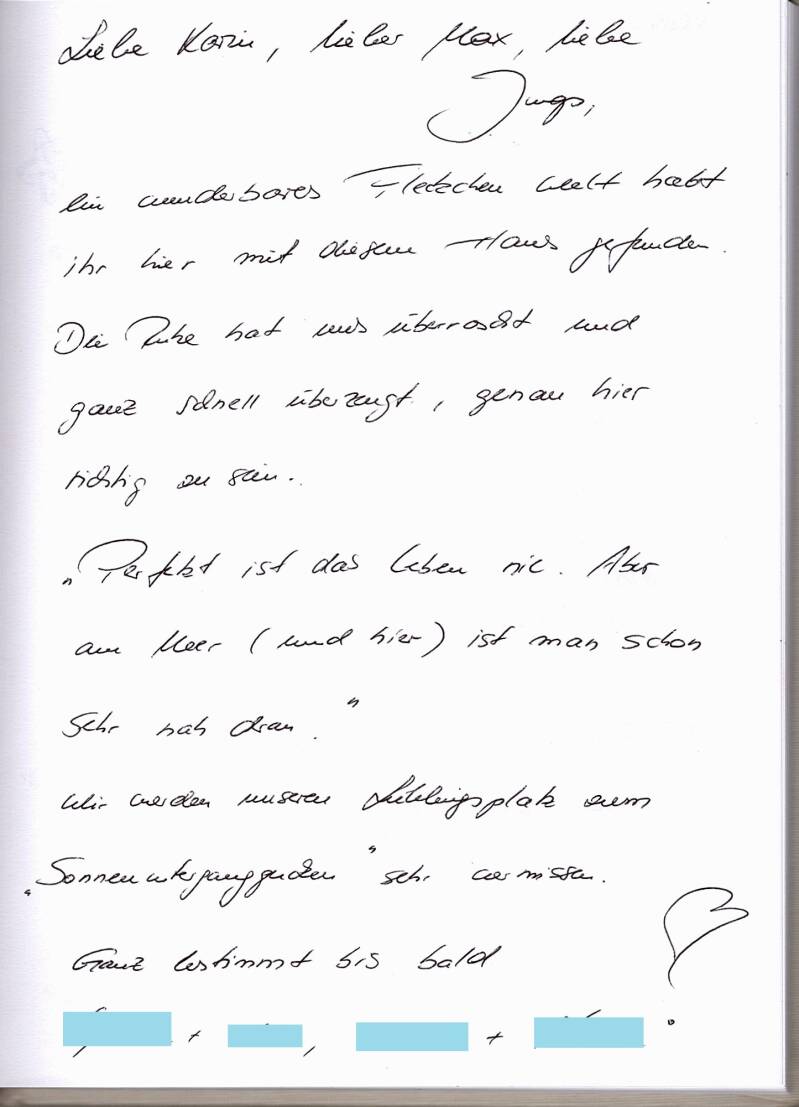 Liebe Karin, lieber Max, liebe
Jungs,
ein wunderbares Fleckchen Welt habt
ihr hier mit diesem Haus gefunden.
Die Ruhe hat uns überrascht und
ganz schnell überzeugt, genau hier
richtig zu sein.
„Perfekt ist das Leben nie. Aber
am Meer (und hier) ist man schon
sehr nah dran."
Wir werden unseren Lieblingsplatz zum
„Sonnenunterganggucken" sehr vermissen.
Ganz bestimmt bis bald
+ , +